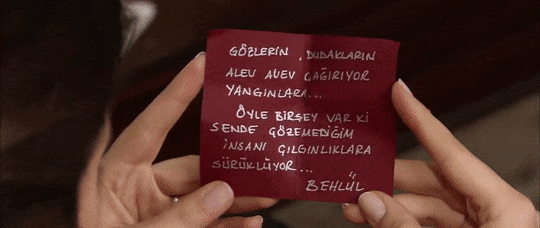 GÖZLERİN, DUDAKLARIN
ALEV ALEV ÇAĞIRIYOR
YANGINLARA...
ÖYLE BİRŞEY VAR Kİ
SENDE ÇÖZEMEDİĞİM
İNSANI ÇILGINLIKLARA
SÜRÜKLÜYOR...
BEHLÜL